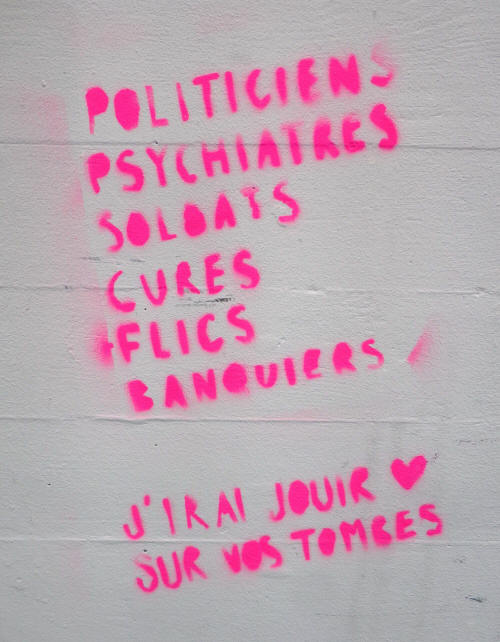 POLITICIENS
PSYCHIATRES
SOLDATS
CURES
FLICS
BANQUIERS
J'IRAI JOUIR ♥
SUR VOS TOMBES